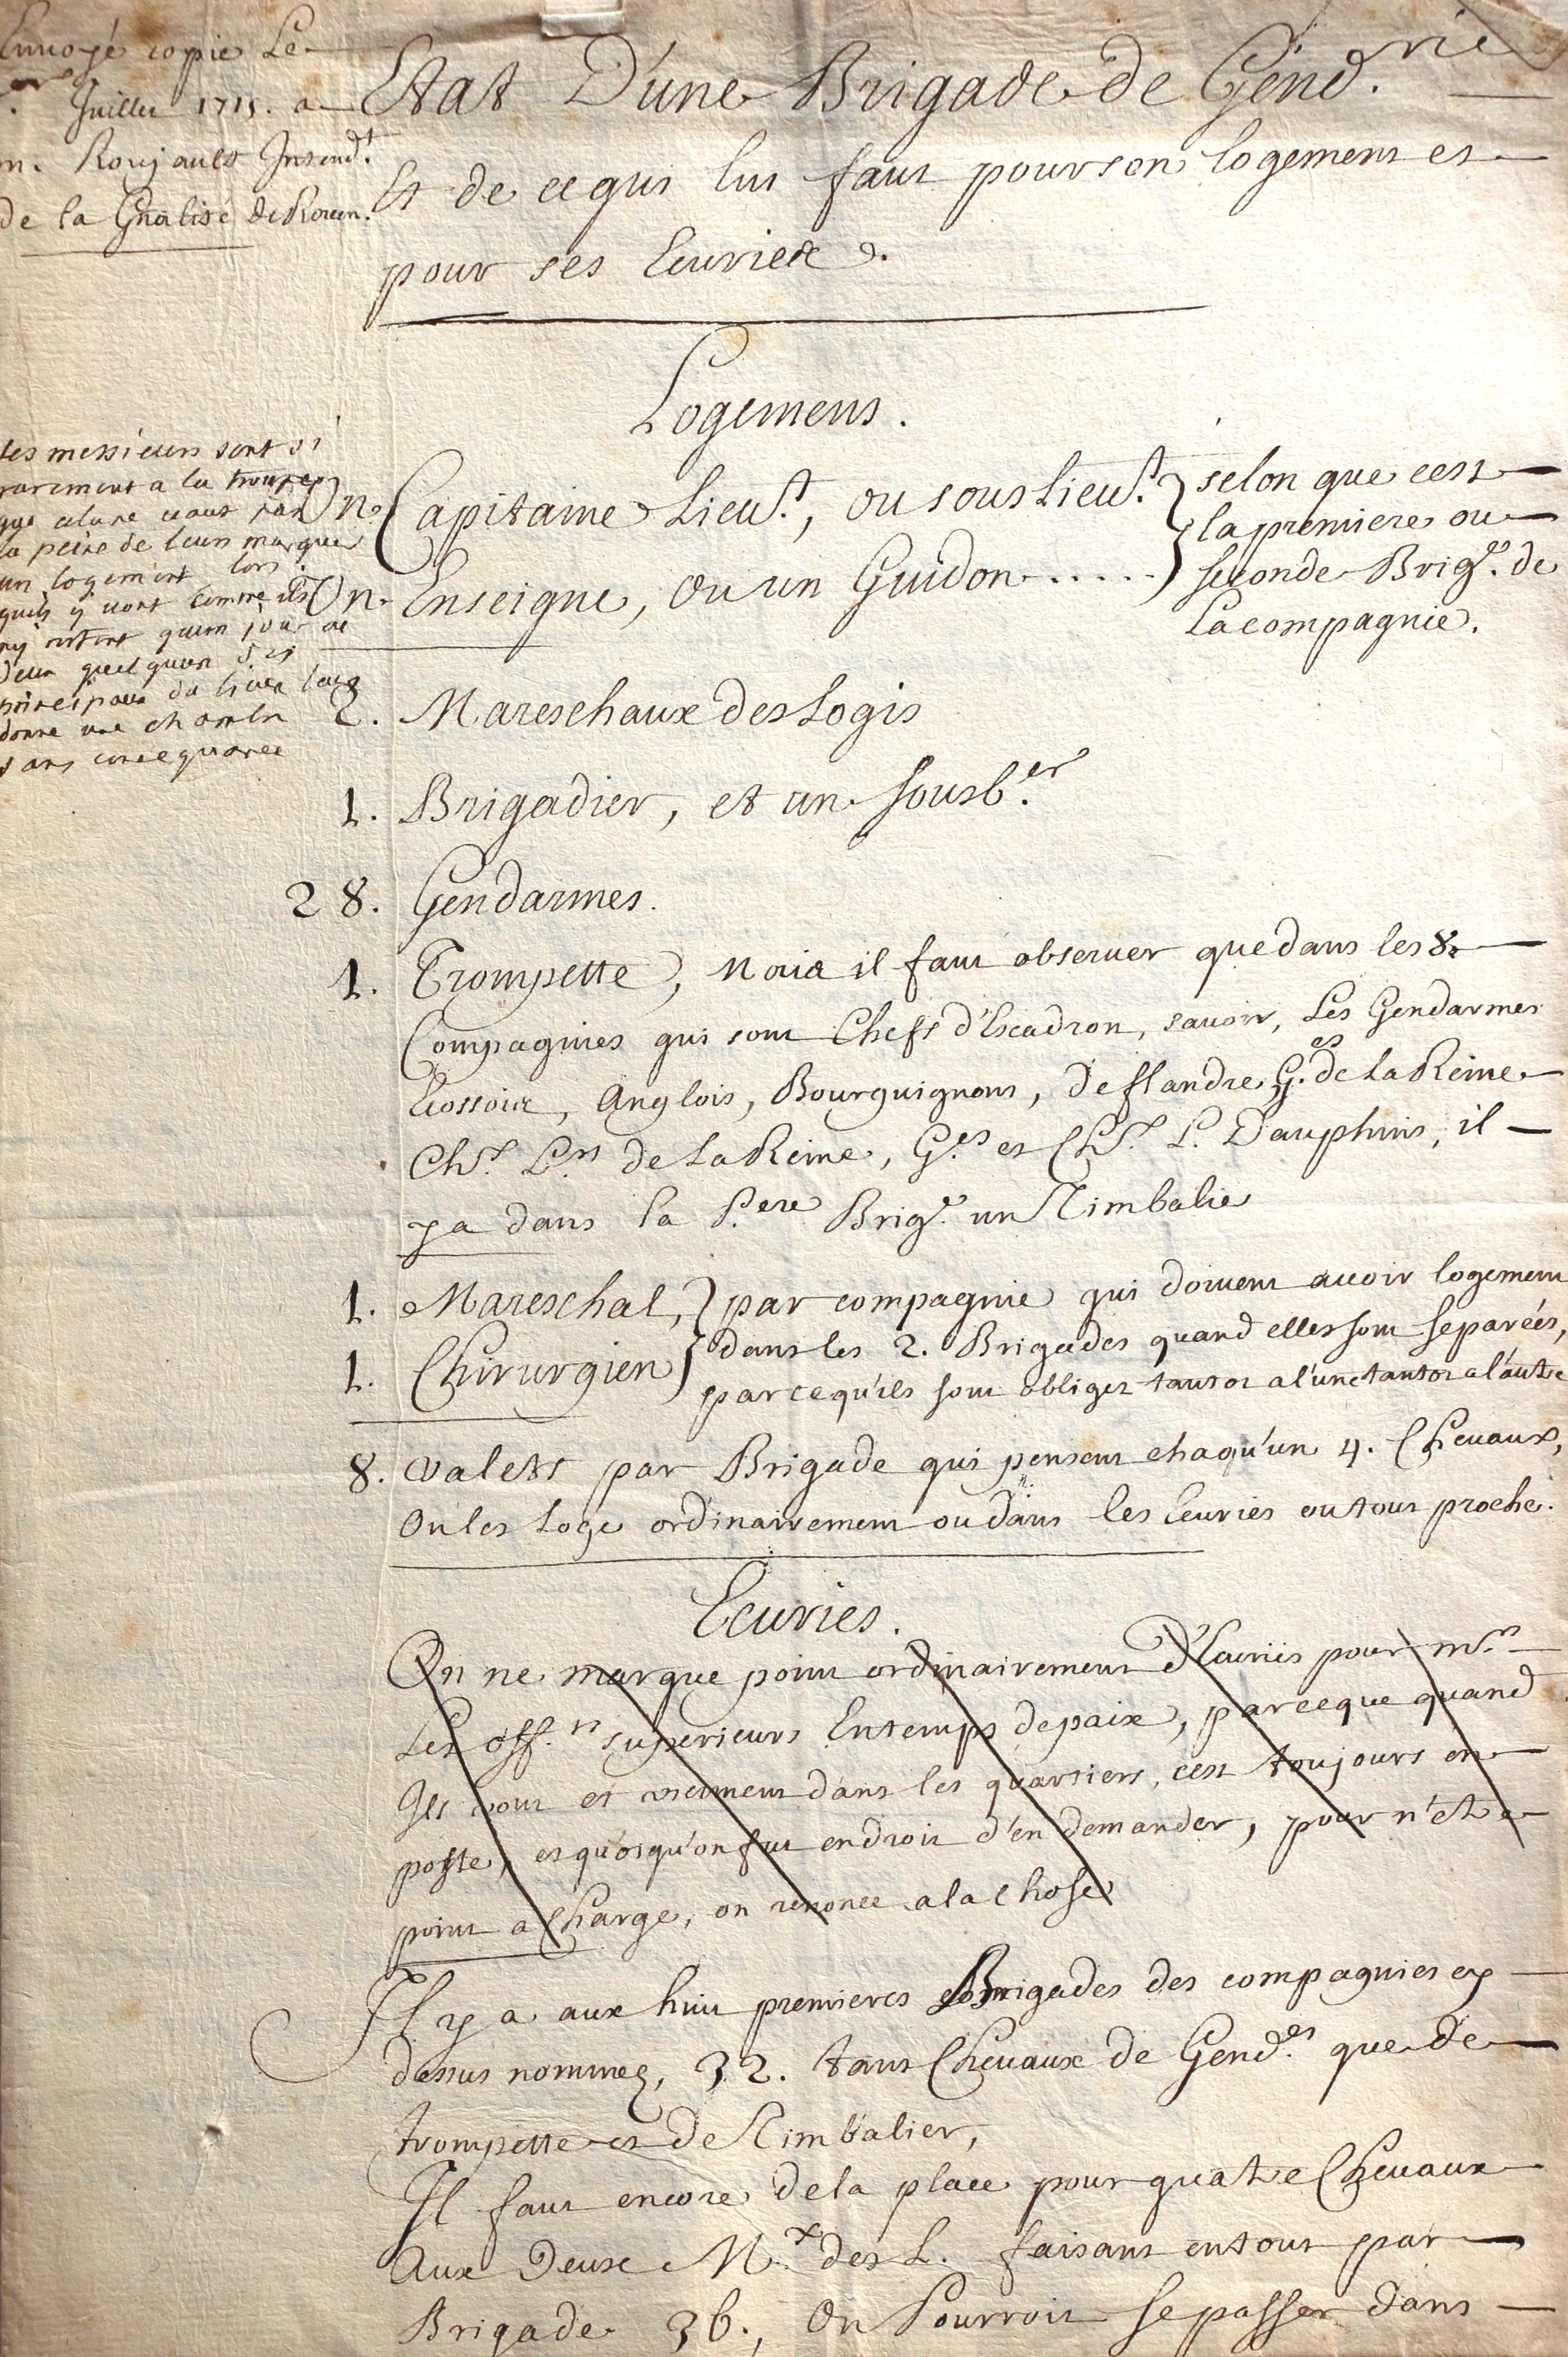 Envoyé copie Le
Juillet 1715. a
m. Roujault Intend.t
de la Gñalité de Rouen.
Etat D'une Brigade de Gend.rie
Et de ce qui lui faut pour son logement et
pour ses Ecuries.
Logemens.
les messieurs sont si
rarement a la troupe
que cela ne vaut pas
la peine de leur marquer
un logement lors
quils y vont comme ils
ny restent quun jour ou
deux quelquun des
principaux du lieu leur
donne une chambre
sans consequence
Un. Capitaine Lieut.t, ou sous Lieut.t
Un. Enseigne, ou un Guidon.....
selon que cest
la premiere ou
seconde Brig.e de
La compagnie.
2. Mareschaux des Logis
1. Brigadier, et un sousb.er
28. Gendarmes.
1. Trompette, Mais il faut observer que dans les 8.
Compagnies qui sont Chefs d'Escadron, savoir, Les Gendarmes
Ecossois, Anglois, Bourguignons, De flandre, G.es de La Reine
Ch.x L.rs de La Reine, G.es et Ch.x L. Dauphins, il
y a dans la P.ere Brig.e un Timbalier
1. Mareschal,
1. Chirurgien
par compagnie qui doivent avoir logement
dans les 2. Brigades quand elles sont separées,
parcequ'ils sont obligez tantot a l'une tantot a l'autre
8. valets par Brigade qui pensent chaqu'un 4. Chevaux,
On les Loge ordinairement ou dans les Ecuries ou tout proche.
Ecuries.
On ne marque point ordinairement d'Ecuries pour m.rs
Les off.rs superieurs En temps de paix, parceque quand
Ils vont et viennent dans les quartiers, cest toujours en
poste, et quoiqu'on fut en droit d'en demander, pour n'etre
point a Charge, on renonce a la chose
Il y a aux huit premieres Brigades des compagnies cy
dessus nommez, 32. tant Chevaux de Gend.es que de
trompette et de Timbalier,
Il faut encore de la place pour quatre Chevaux
Aux Deux M.x des L. faisant en tout par
Brigade 36., On Pourroit se passer dans